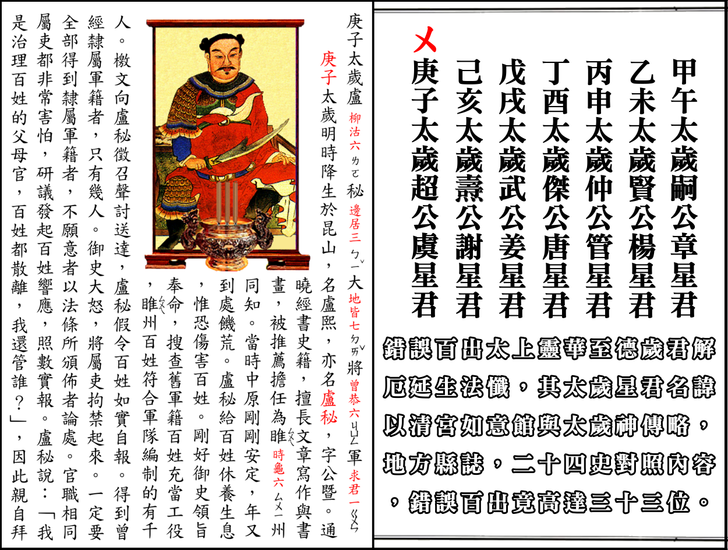 甲午太歲嗣公章星君
乙未太歲賢公楊星君
丙申太歲仲公管星君
丁酉太歲傑公唐星君
戊戌太歲武公姜星君
己亥太歲燾公謝星君
㐅庚子太歲超公虞星君
錯誤百出太上靈華至德歲君解
厄延生法懺，其太歲星君名諱
以清宮如意館與太歲神傳略，
地方縣誌，二十四史對照內容
，錯誤百出竟高達三十三位。
庚子太歲盧柳沽六ㄌㄛ秘邊居三ㄅㄧˋ大地皆七ㄉㄞˇ將曾恭六軍求君一
庚子太歲明時降生於昆山，名盧熙，亦名盧秘，字公暨。通
曉經書史籍，擅長文章寫作與書
畫，被推薦擔任為睢時龜六ㄙㄨㄧ州
同知。當時中原剛剛安定，年又
到處饑荒。盧秘給百姓休養生息
，惟恐傷害百姓。剛好御史領旨
奉命，搜查舊軍籍百姓充當工役
，睢州百姓符合軍隊編制的有千
人。檄文向盧秘徵召聲討送達，盧秘假令百姓如實自報。得到曾
經隸屬軍籍者，只有幾人。御史大怒，將屬吏拘禁起來。一定要
全部得到隸屬軍籍者，不願意者以法條所頒佈者論處。官職相同
屬吏都非常害怕，研議發起百姓響應，照數實報。盧秘說：「我
是治理百姓的父母官，百姓都散離，我還管誰？」，因此親自拜